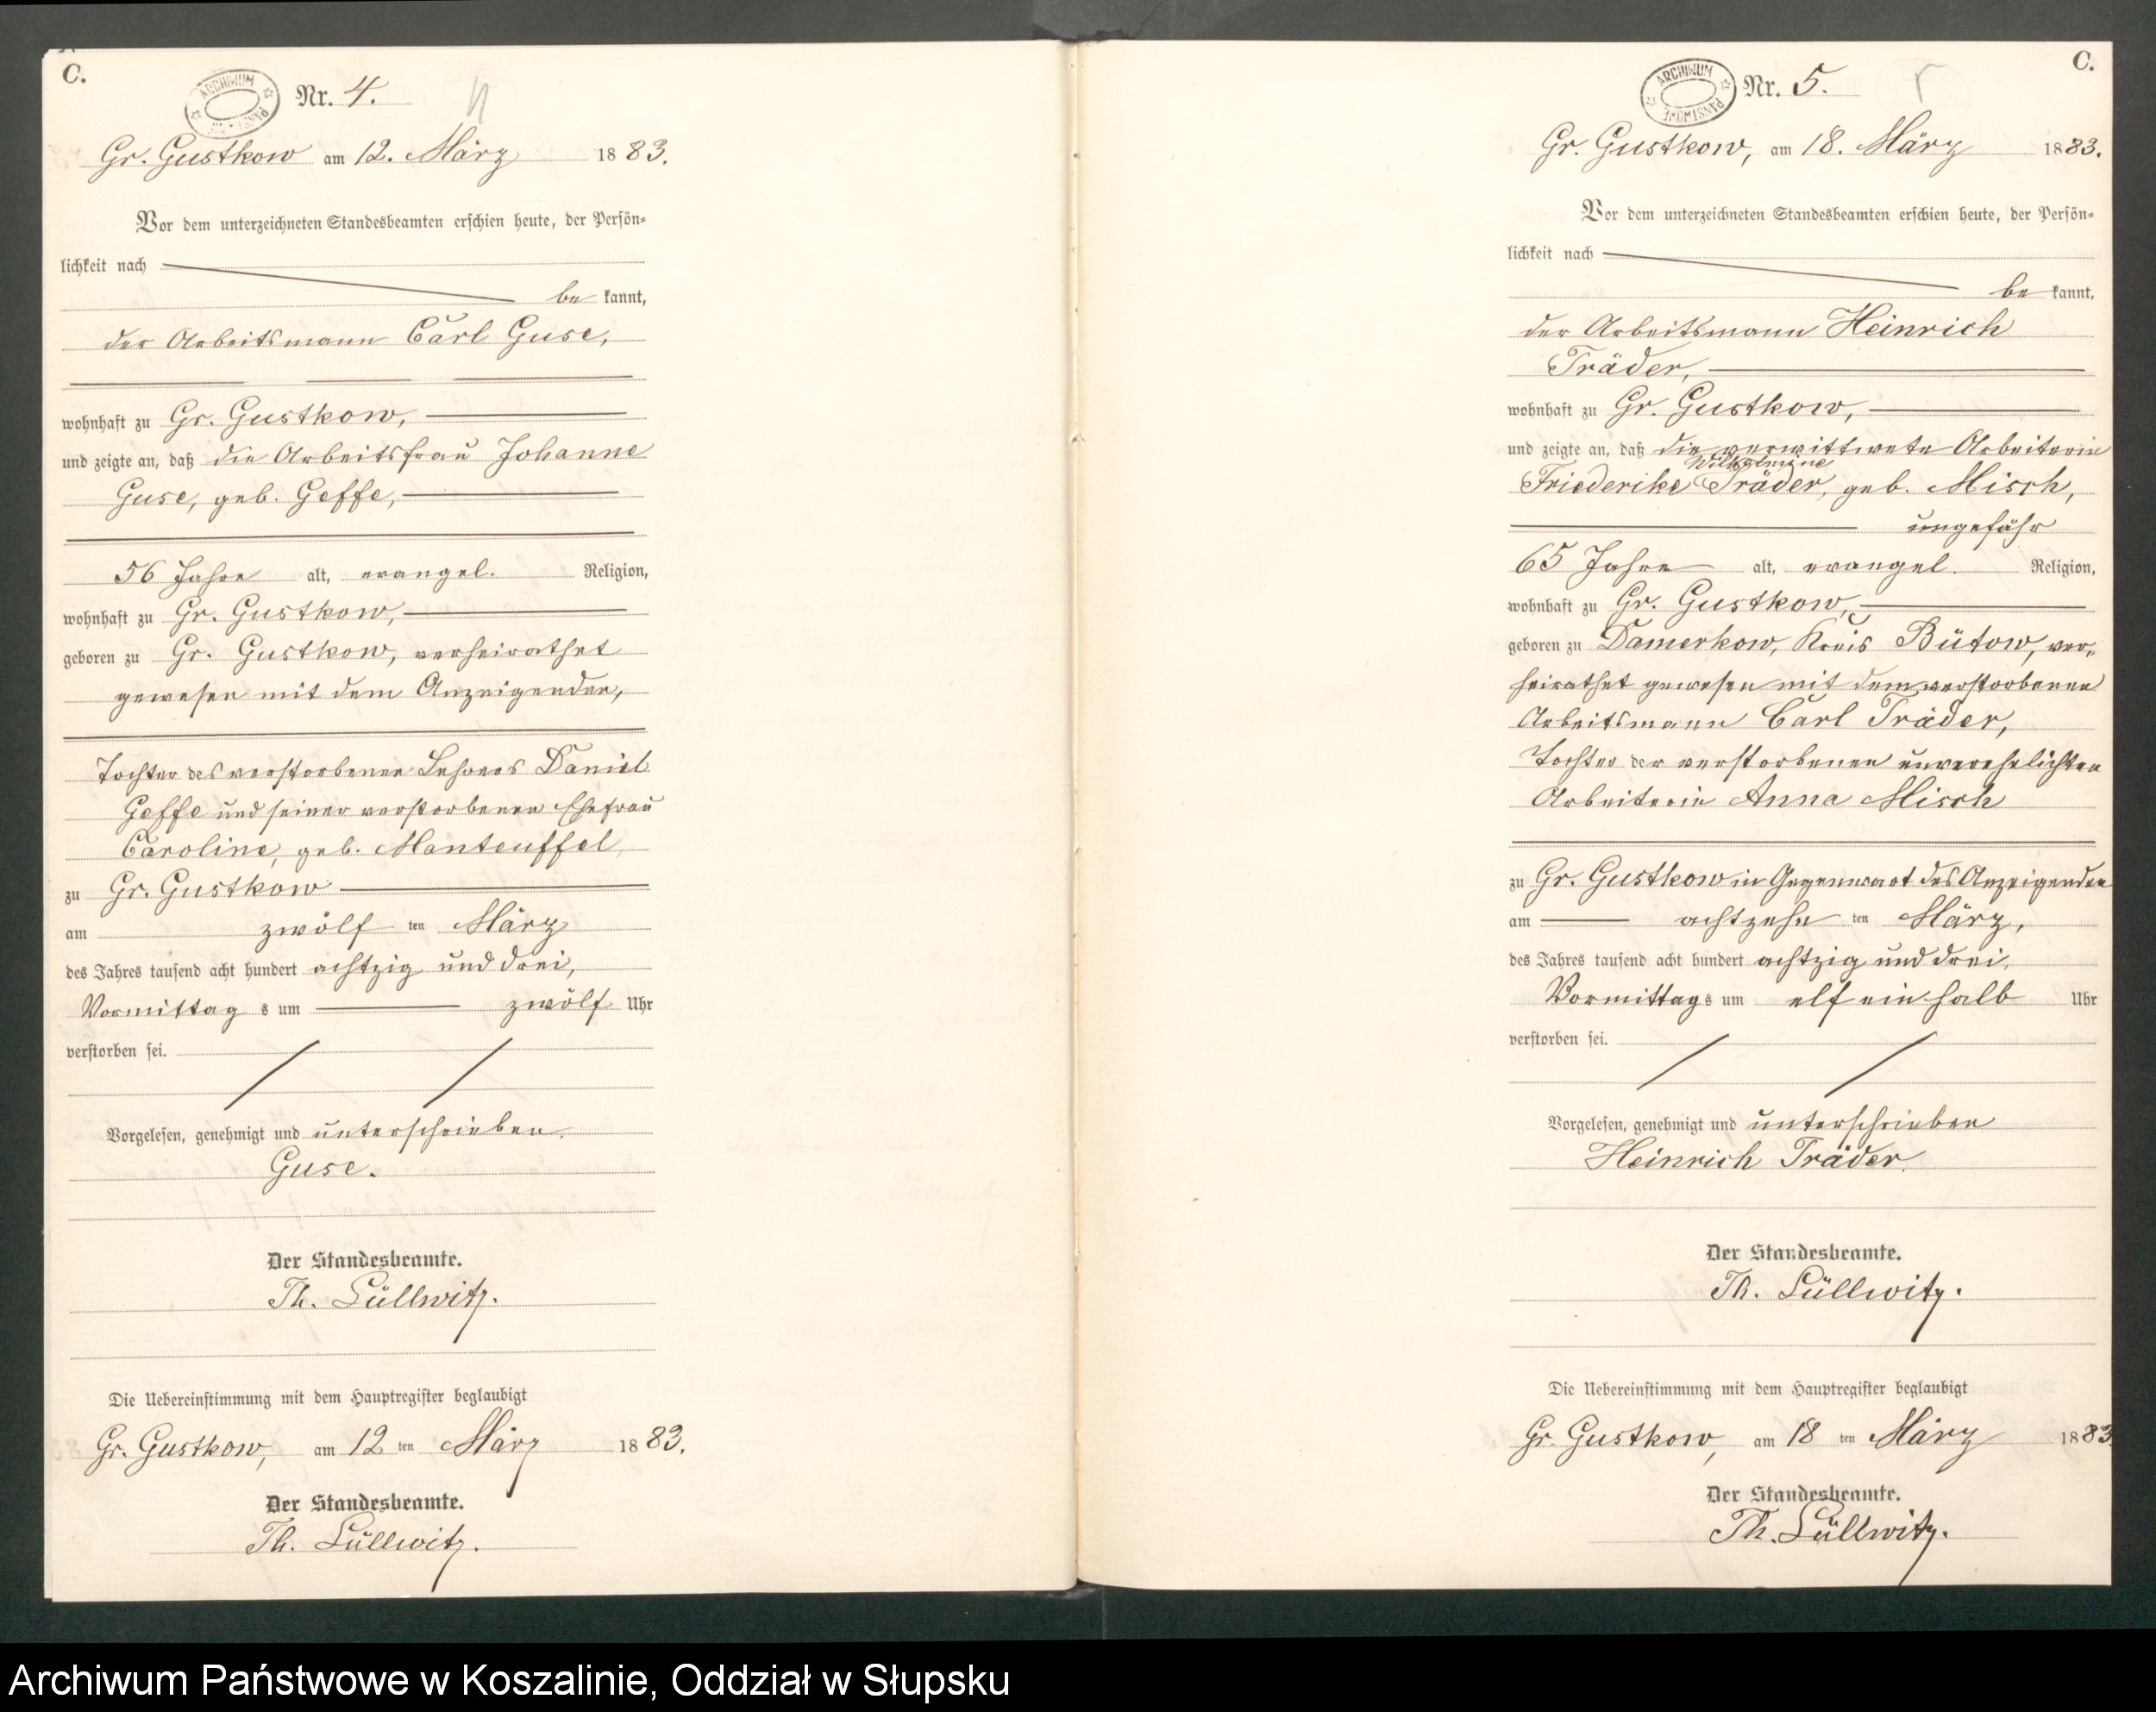 C.
ARCHIWUM
Nr. 4.
Gr. Gustkow am 12. März 1883.
Vor dem unterzeichneten Standesbeamten erschien heute, der Persön-
lichkeit nach
be kannt,
der Arbeitsmann Carl Guse,
wohnhaft zu Gr. Gustkow,
und zeigte an, daß die Arbeitsfrau Johanne
Guse, geb. Geffe,
56 Jahre alt, evangel. Religion,
wohnhaft zu Gr. Gustkow,
geboren zu Gr. Gustkow, verheirathet
gewesen mit dem Anzeigenden,
Tochter des verstorbenen Lehrers Daniel
Geffe und seiner verstorbenen Ehefrau
Caroline, geb. Manteuffel,
zu Gr. Gustkow
am zwölf ten März
des Jahres tausend acht hundert achtzig und drei,
Vormittag s um zwölf Uhr
verstorben sei.
Vorgelesen, genehmigt und unterschrieben.
Guse.
Der Standesbeamte.
Th. Lüllwitz.
Die Uebereinstimmung mit dem Hauptregister beglaubigt
Gr. Gustkow, am 12 ten März 1883.
Der Standesbeamte.
Th. Lüllwitz.
C.
ARCHIWUM PAŃSTWOWE
Nr. 5.
Gr. Gustkow, am 18. März 1883.
Vor dem unterzeichneten Standesbeamten erschien heute, der Persön-
lichkeit nach
be kannt,
der Arbeitsmann Heinrich
Träder,
wohnhaft zu Gr. Gustkow,
und zeigte an, daß die verwittwete Arbeiterin
Wilhelmine
Friederike Träder, geb. Misch,
ungefähr
65 Jahre alt, evangel. Religion,
wohnhaft zu Gr. Gustkow,
geboren zu Damerkow, Kreis Bütow, ver-
heirathet gewesen mit dem verstorbenen
Arbeitsmann Carl Träder,
Tochter der verstorbenen unverehelichten
Arbeiterin Anna Misch
zu Gr. Gustkow in Gegenwart des Anzeigenden
am achtzehn ten März,
des Jahres tausend acht hundert achtzig und drei,
Vormittags um elf ein halb Uhr
verstorben sei.
Vorgelesen, genehmigt und unterschrieben
Heinrich Träder.
Der Standesbeamte.
Th. Lüllwitz.
Die Uebereinstimmung mit dem Hauptregister beglaubigt
Gr. Gustkow, am 18 ten März 1883
Der Standesbeamte.
Th. Lüllwitz.
Archiwum Państwowe w Koszalinie, Oddział w Słupsku